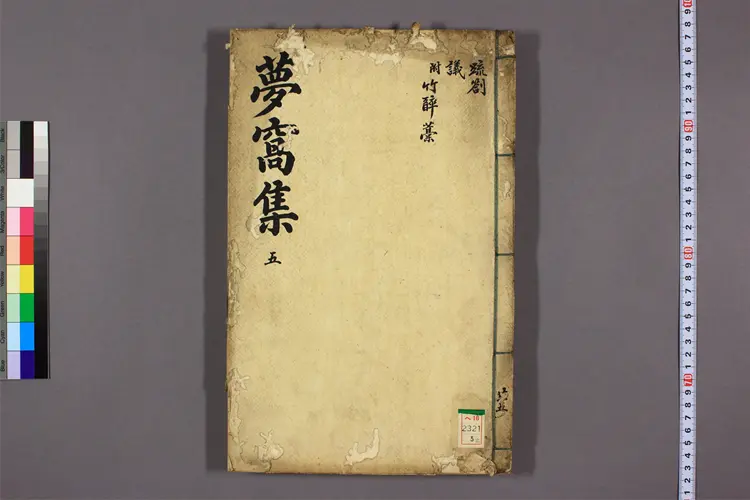 夢窩集
五
疏劄
議
附
竹醉藁
共五
ヘ18
2321
5